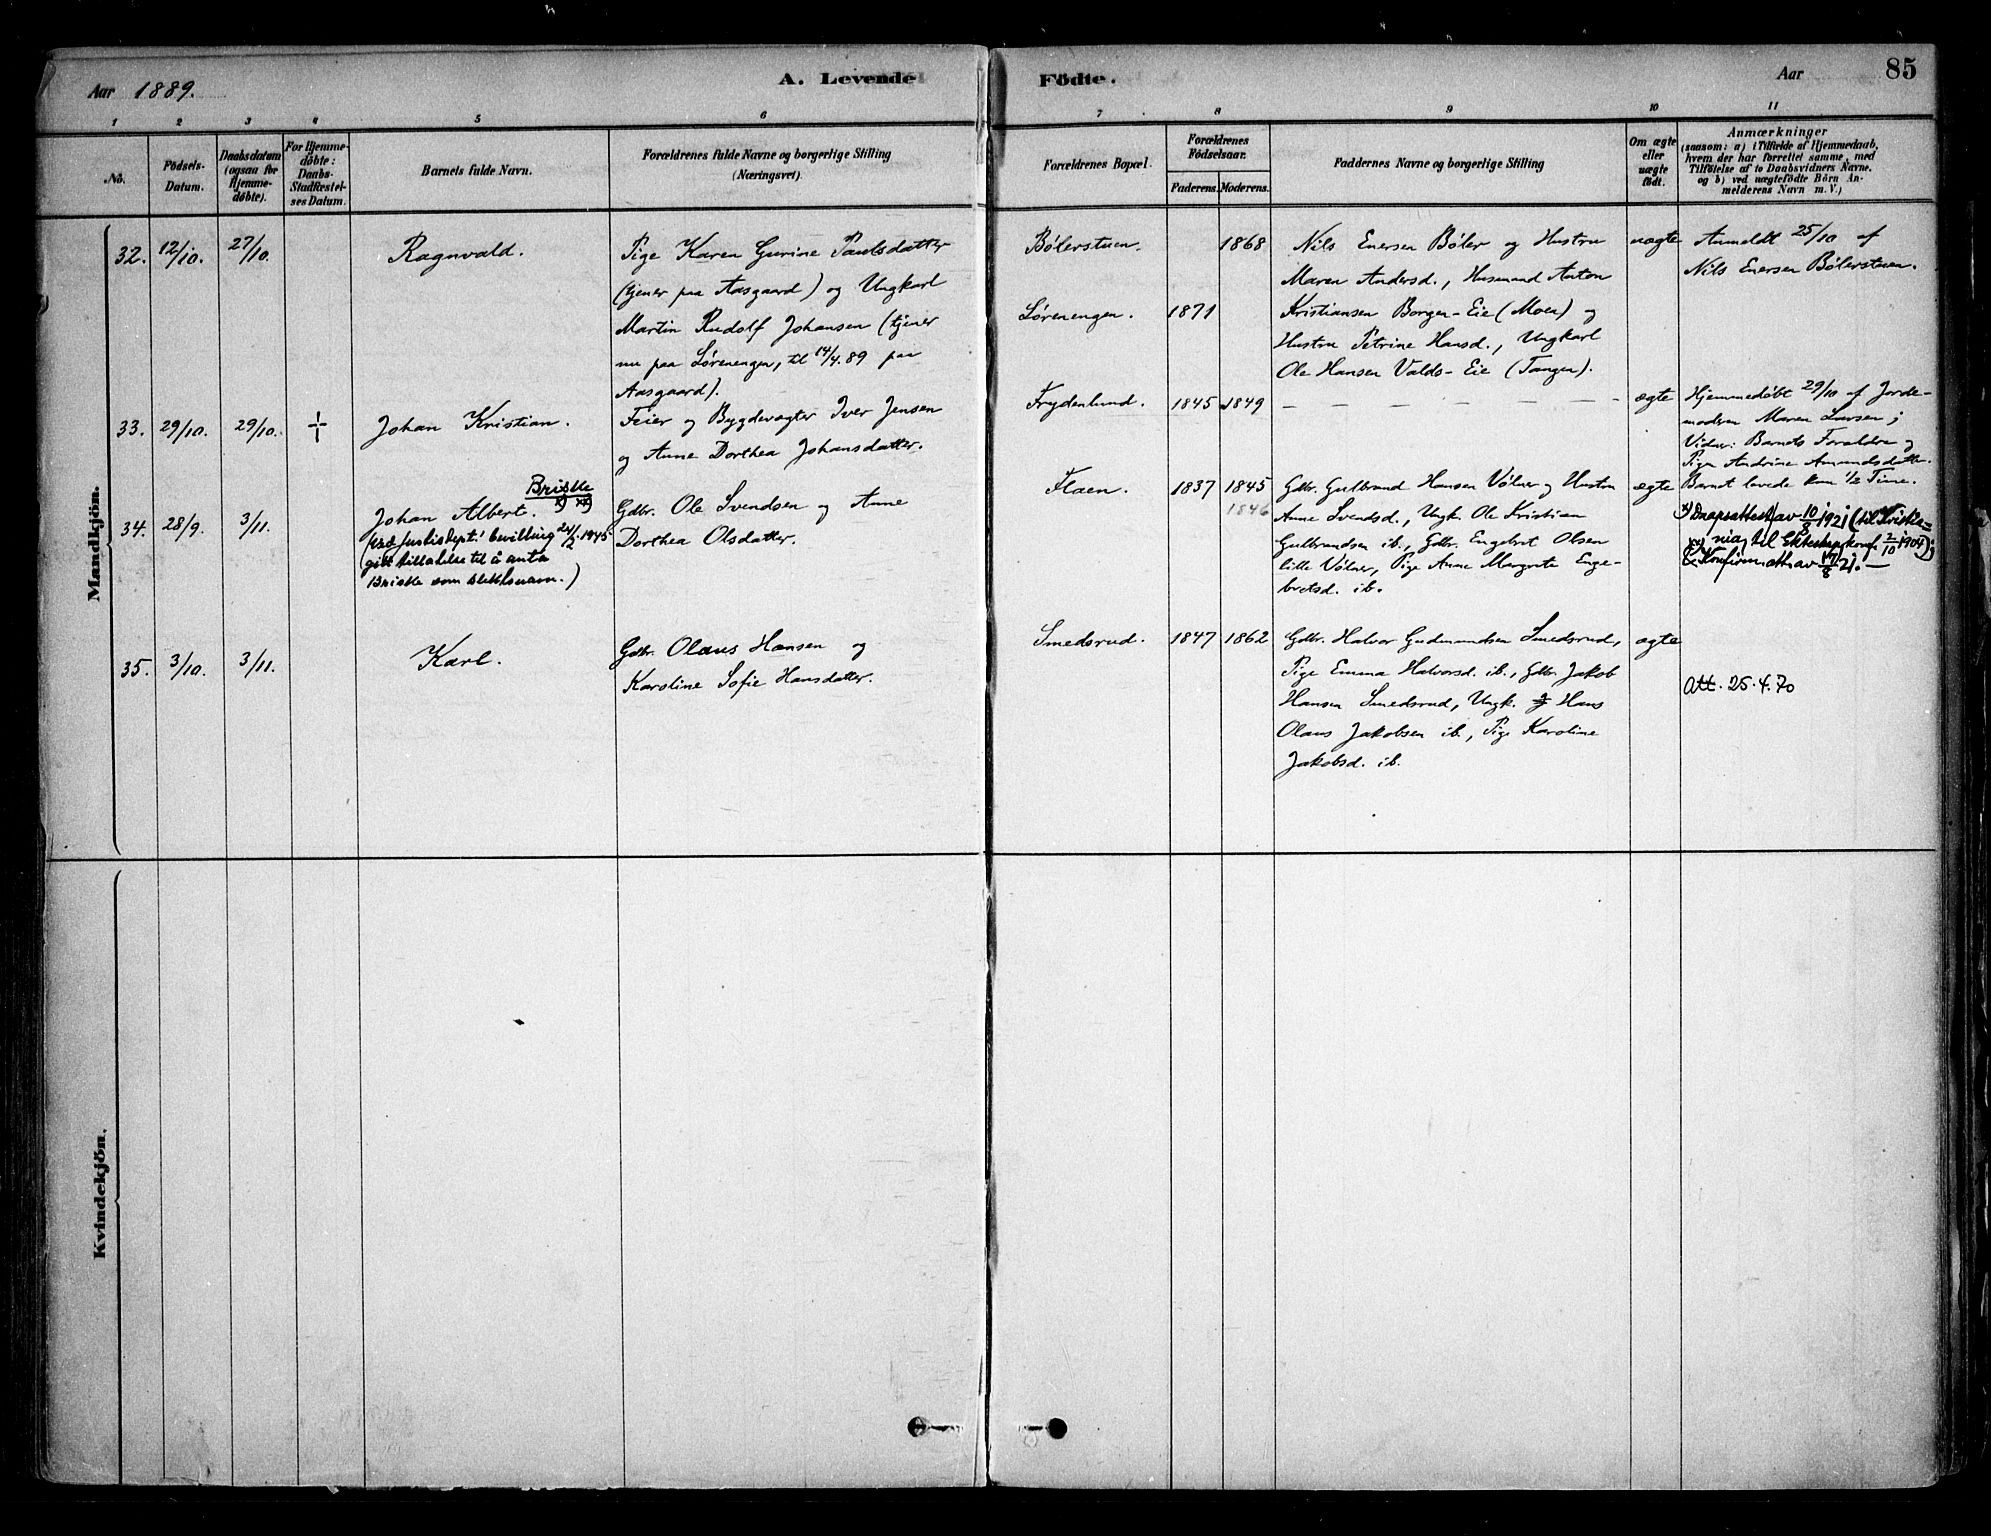 Aar 1889.
A. Levende Födte.
Aar
85
1 2 3 4 5 6 7 8 9 10 11
No.
Födsels-Datum.
Daabsdatum (ogsaa for Hjemmedöbte).
For Hjemmedöbte: Daabs-Stadfæstelses Datum.
Barnets fulde Navn.
Forældrenes fulde Navne og borgerlige Stilling (Næringsvei).
Forældrenes Bopæl.
Forældrenes Födselsaar.
Faderens. Moderens.
Faddernes Navne og borgerlige Stilling
Om ægte eller uægte födt.
Anmærkninger
(saasom: a) i Tilfælde af Hjemmedaab,
hvem der har forrettet samme, med
Tilföielse af to Daabsvidners Navne,
og b) ved uægtefödte Börn An-
melderens Navn m. V.)
Mandkjön.
32. 12/10. 27/10. Ragnvald.
Pige Karen Gurine Paulsdatter
(tjener paa Aasgaard) og Ungkarl
Martin Rudolf Johansen (tjener
nu paa Lørenengen, til 14/4.89 paa
Aasgaard).
Bølerstuen.
Lørenengen.
1871
1868
Nils Enersen Bøler og Hustru
Maren Andersd., Husmand Anton
Kristiansen Borgen-Eie (Moen) og
Hustru Petrine Hansd., Ungkarl
Ole Hansen Valds-Eie (Tangen).
uægte
Anmeldt 25/10 af
Nils Enersen Bølerstuen.
33. 29/10. 29/10. ┼ Johan Kristian.
Feier og Bygdevægter Iver Jensen
og Anne Dorthea Johansdatter.
Frydenlund. 1845 1849
— — — — — — —
ægte
Hjemmedøbt 29/10 af Jorde-
moderen Maren Larsen;
Vidner: Barnets Forældre og
Pige Andrine Amundsdatter.
Barnet levede kun 1/2 Time.
34. 28/9. 3/11. Johan Albert.
Briske
x) xx)
(ved Justisdept.' bevilling 24/2.1945
gitt tillatelse til å anta
Briske som slektsnavn.)
Gdbr. Ole Svendsen og Anne
Dorthea Olsdatter.
Flaen. 1837 1845
1846
Gdbr. Gulbrand Hansen Vølner og Hustru
Anne Svendsd., Ungk. Ole Kristian
Gulbrandsen ib., Gdbr. Engebret Olsen
lille Vølner, Pige Anne Margrete Enge-
bretsd. ib.
ægte
x) Daapsattest av 10/8 1921 (til Kristia-
nia) til Ekteskap konf. 2/10 1904);
xx) Konfirm.att. av 17/8 21. —
35. 3/10. 3/11. Karl.
Gdbr. Olaus Hansen og
Karoline Sofie Hansdatter.
Smedsrud. 1847 1862
Gdbr. Halvor Gudmundsen Smedsrud,
Pige Emma Halvorsd. ib., Gdbr. Jakob
Hansen Smedsrud, Ungk. Hans
Olaus Jakobsen ib., Pige Karoline
Jakobsd. ib.
ægte
Att. 25.4.70
Kvindekjön.